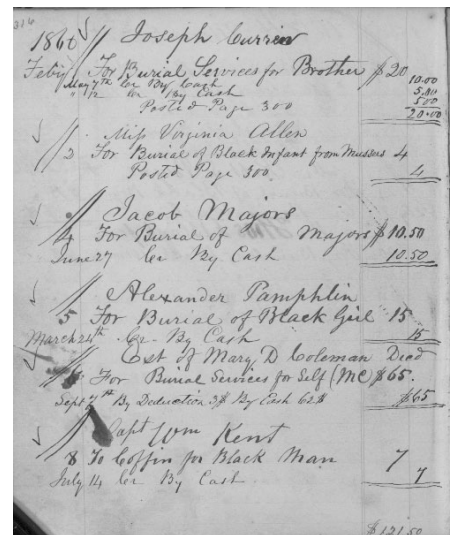 314
1860 Joseph Currin
Feby For Burial Services for Brother $20
May 7th Cr By Cash 10.00
" 12 Cr By Cash 5.00
5.00
Posted Page 300 20.00
Miss Virginia Allen
2 For Burial of Black Infant from 4
Posted Page 300 4
Jacob Majors
4 For Burial of Majors $10.50
June 27 Cr By Cash 10.50
Alexander Pamphlin
5 For Burial of Black Girl 15
March 24th Cr By Cash 15
Est of Mary D Coleman Died
For Burial Services for Self (MC) $65.
Sept 7th By Deduction 3$ By Cash 62$ $65
Capt Wm Kent
8 To Coffin for Black Man 7
July 14 Cr By Cash 7
$121.50